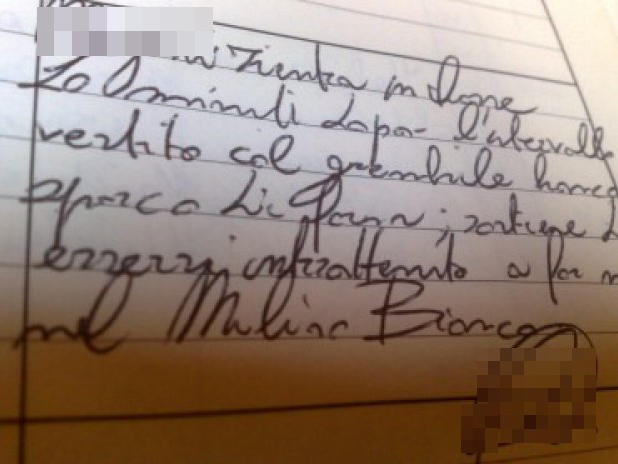 rientra in classe
20 minuti dopo l'intervallo
vestito col grembiule
sporco di farina; sostiene
essersi intrattenuto a far
nel Mulino Bianco